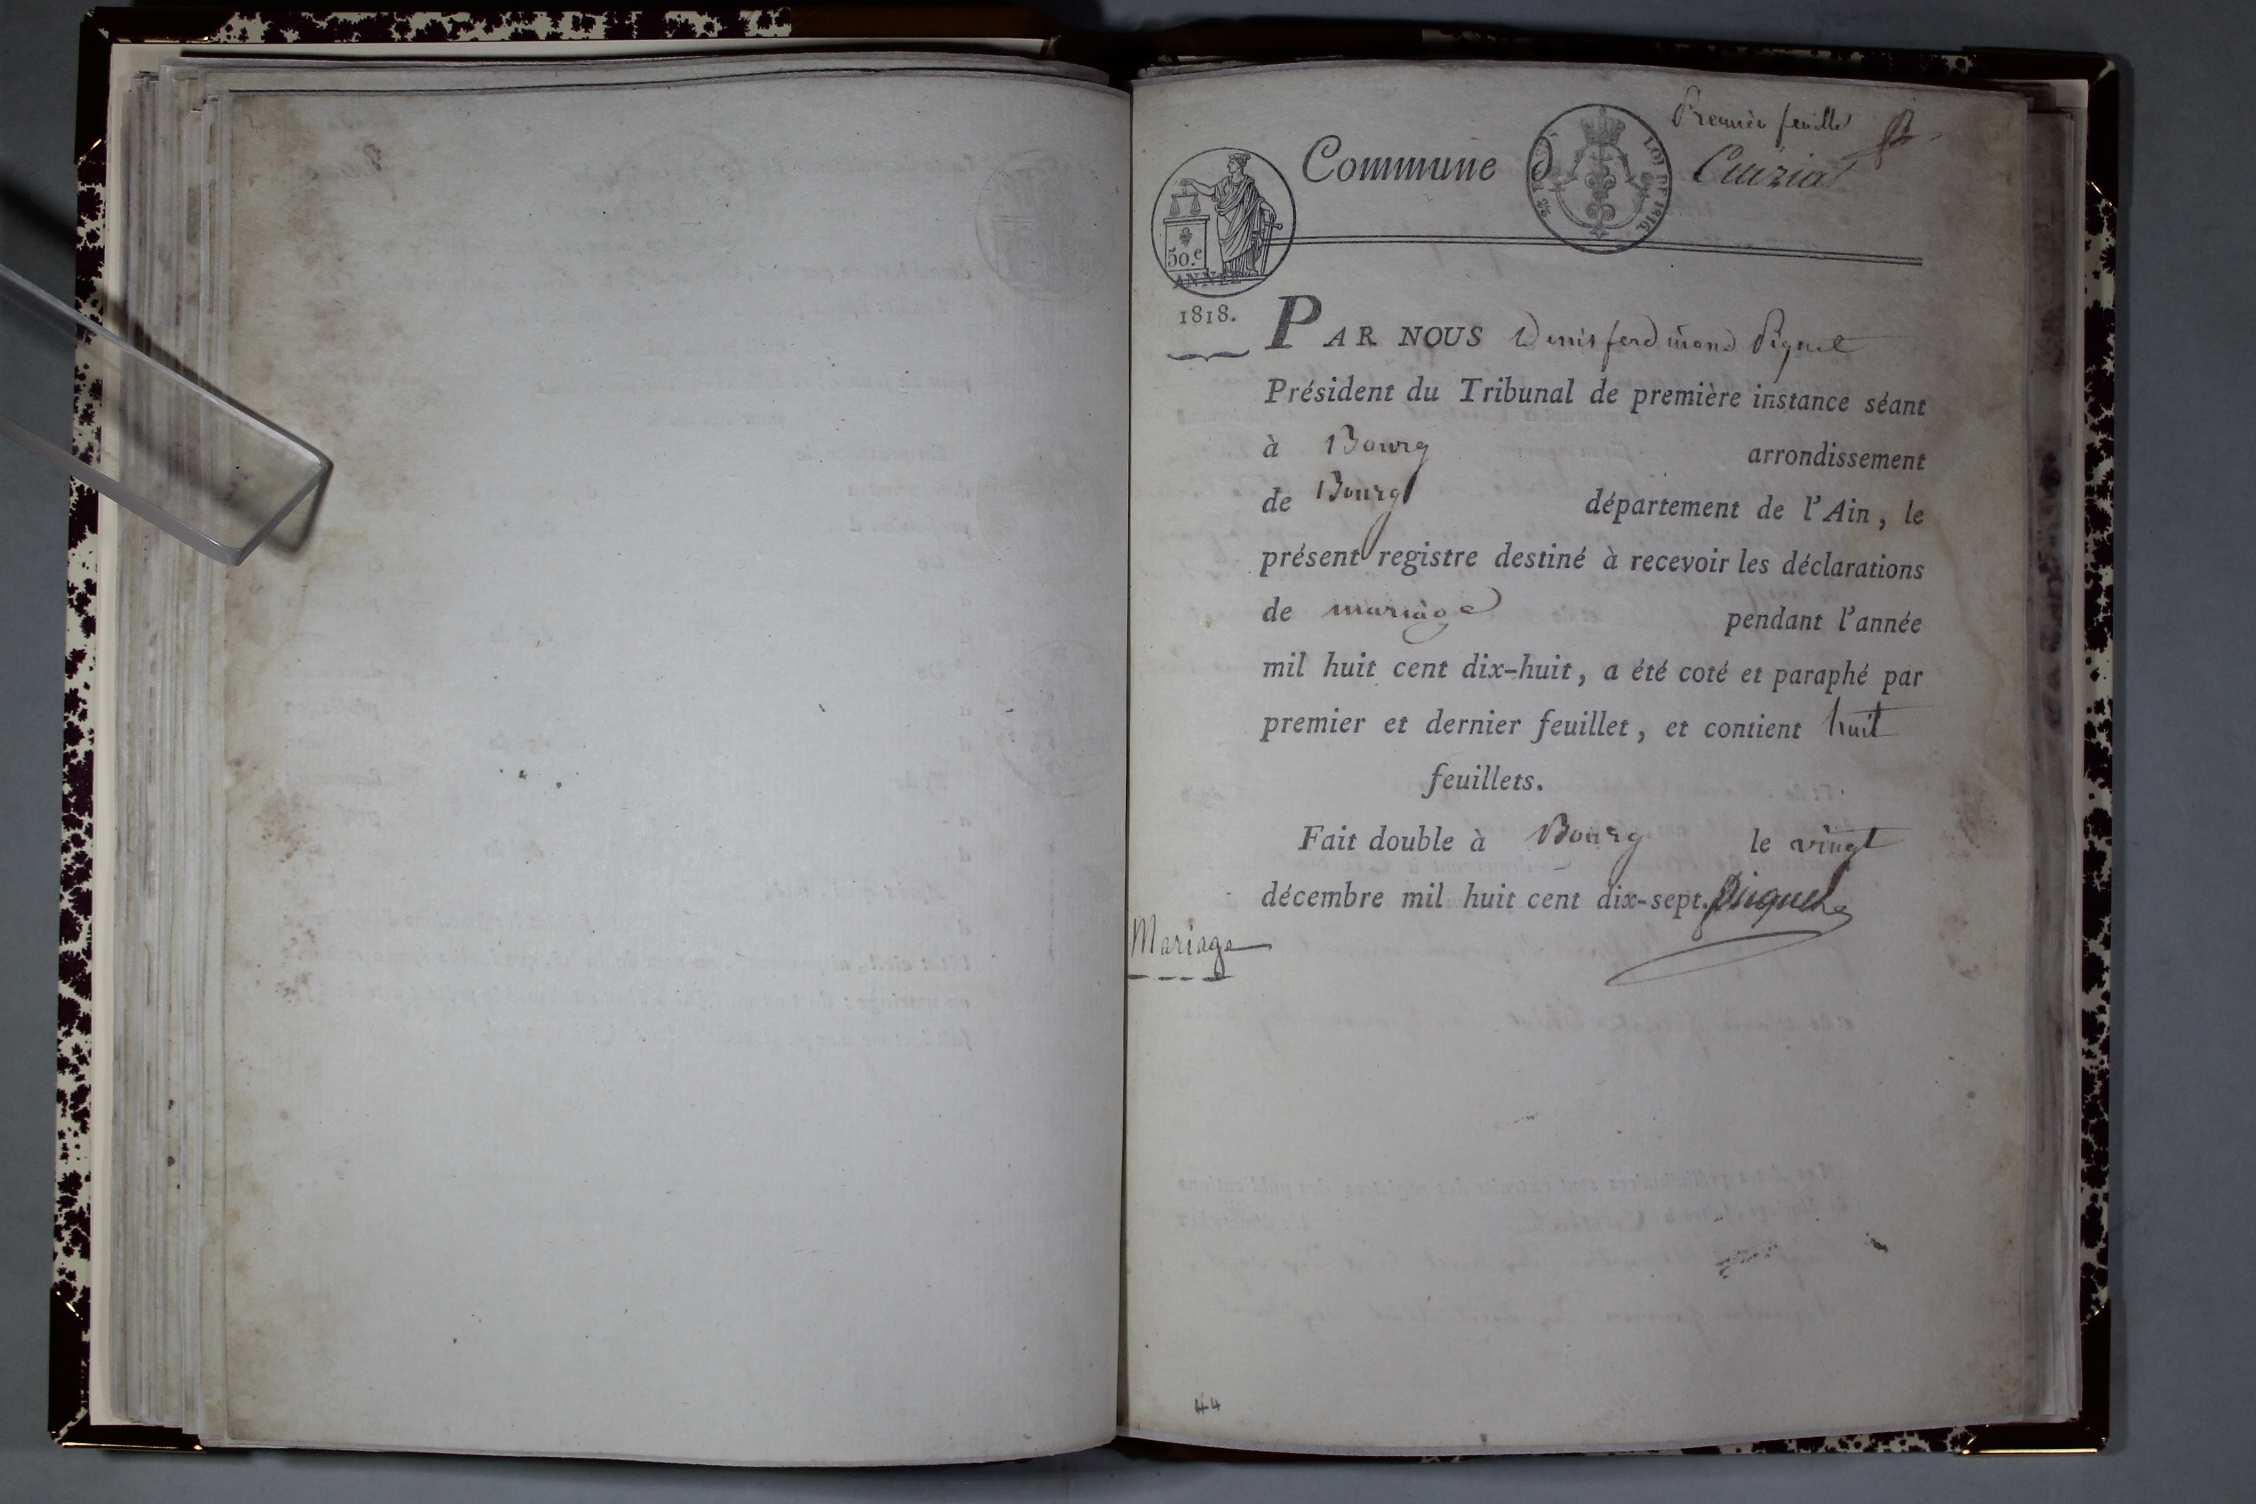 Premier feuillet
Commune d Cuiziat
50.e
ANNÉE
LOI DE 1816
1818.
PAR NOUS Denis ferdinand Piquet
Président du Tribunal de première instance séant
à Bourg arrondissement
de Bourg département de l'Ain, le
présent registre destiné à recevoir les déclarations
de mariage pendant l'année
mil huit cent dix-huit, a été coté et paraphé par
premier et dernier feuillet, et contient huit
feuillets.
Fait double à Bourg le vingt
décembre mil huit cent dix-sept. Piquet
Mariage
44